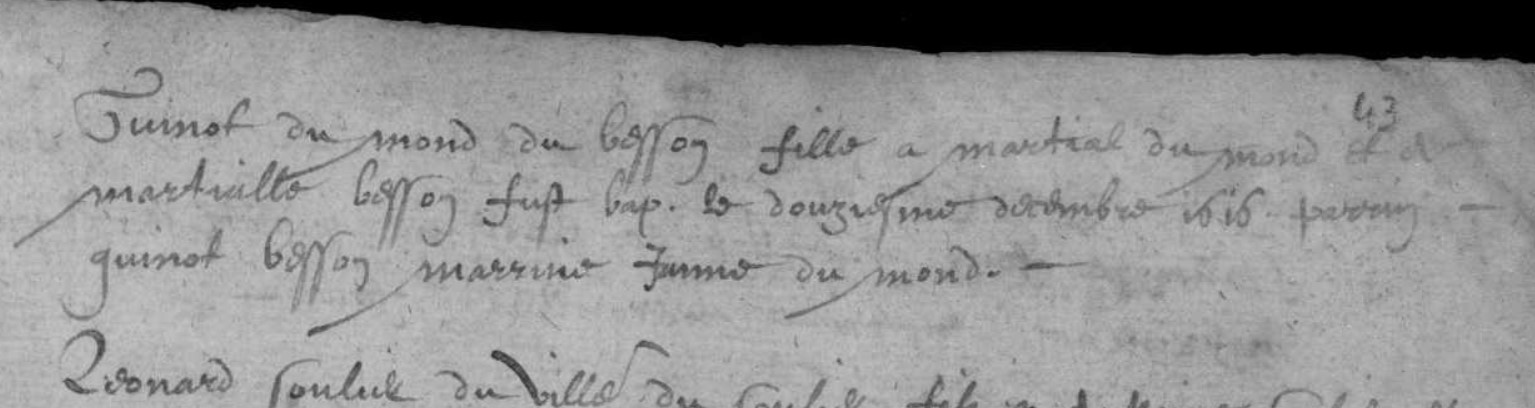 43
Guinot du mond du besson fille a martial du mond et de
martialle besson fust bap. le douziesme decembre 1616. parrin
guinot besson marrine Janne du mond.
Leonard soulie du ville du soulie